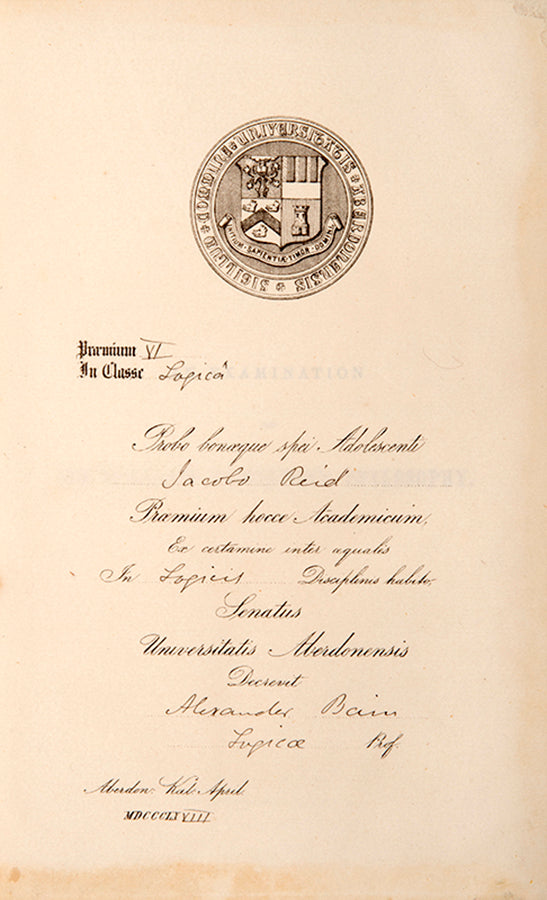 SIGILLUM * COMMUNE * UNIVERSITATIS * ABERDONENSIS *
INITIUM · SAPIENTIÆ · TIMOR · DOMINI
Præmium VI
In Classe Logicâ
EXAMINATION
PHILOSOPHY
Probo bonæque spei Adolescenti
Jacobo Reid
Præmium hocce Academicum,
Ex certamine inter æqualis
In Logicis Disciplinis habito,
Senatus
Universitatis Aberdonensis
Decrevit
Alexander Bain
Logicæ Prof.
Aberdon: Kal: April.
MDCCCLXVIII